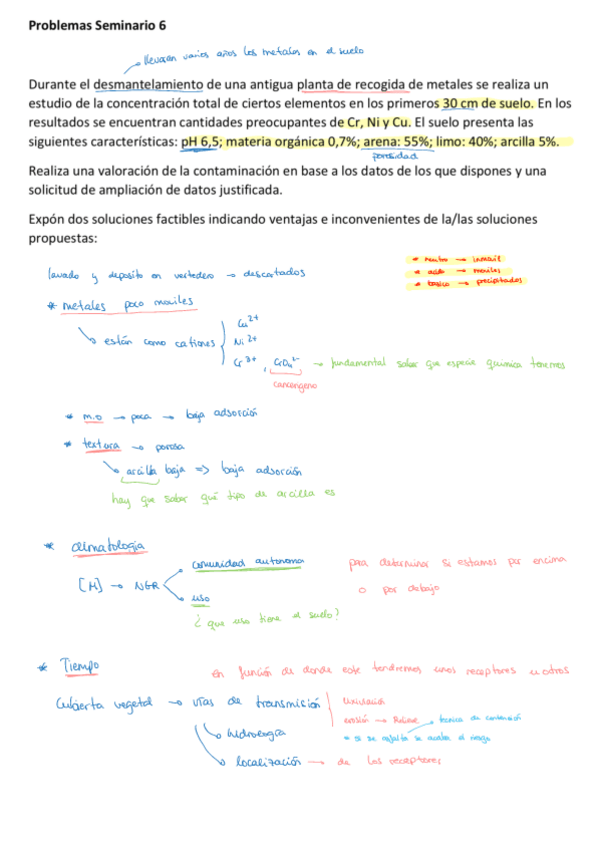 Problemas Seminario 6
llevaran varios años los metales en el suelo
Durante el desmantelamiento de una antigua planta de recogida de metales se realiza un
estudio de la concentración total de ciertos elementos en los primeros 30 cm de suelo. En los
resultados se encuentran cantidades preocupantes de Cr, Ni y Cu. El suelo presenta las
siguientes características: pH 6,5; materia orgánica 0,7%; arena: 55%; limo: 40%; arcilla 5%.
porosidad
Realiza una valoración de la contaminación en base a los datos de los que dispones y una
solicitud de ampliación de datos justificada.
Expón dos soluciones factibles indicando ventajas e inconvenientes de la/las soluciones
propuestas:
* neutro → inmovil
* acido → moviles
* basico → precipitados
lavado y deposito en vertedero → descartados
* metales poco moviles
están como cationes
Cu2+
Ni2+
Cr3+, CrO42- → fundamental saber que especie quimica tenemos
cancerigeno
* m.o → poca → baja adsorción
* textura → porosa
arcilla baja => baja adsorción
hay que saber qué tipo de arcilla es
* climatologia
[M] → NGR
comunidad autonoma
uso
¿que uso tiene el suelo?
para determinar si estamos por encima
o por debajo
* Tiempo
en función de donde este tendremos unos receptores u otros
Cubierta vegetal → vías de transmisión
lixiviación
erosión → Relieve → tecnica de contención
* si se asfalta se acaba el riesgo
hidrología
localización → de los receptores